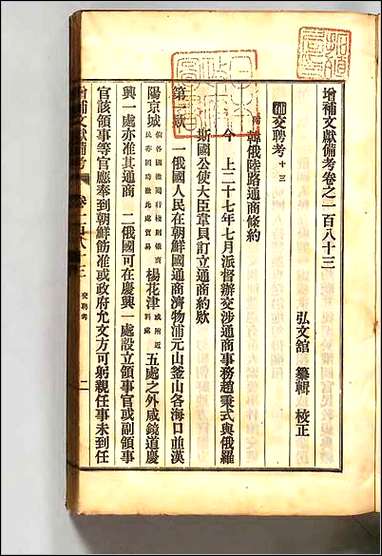 增補文獻備考卷之一百八十三
弘文館 纂輯 校正
補交聘考十三
附韓俄陸路通商條約
今 上二十七年七月派督辦交涉通商事務趙秉式與俄羅
斯國公使大臣韋貝訂立通商約欵
第一欵 一俄國人民在朝鮮國通商濟物浦元山釜山各海口並漢
陽京城 楊花津 五處之外咸鏡道慶
興一處亦准其通商 二俄國可在慶興一處設立領事官或副領事
官該領事等官應奉到朝鮮飭准或政府允文方可躬親任事未到任
增補文獻備考 卷一百八十三 交聘考 二